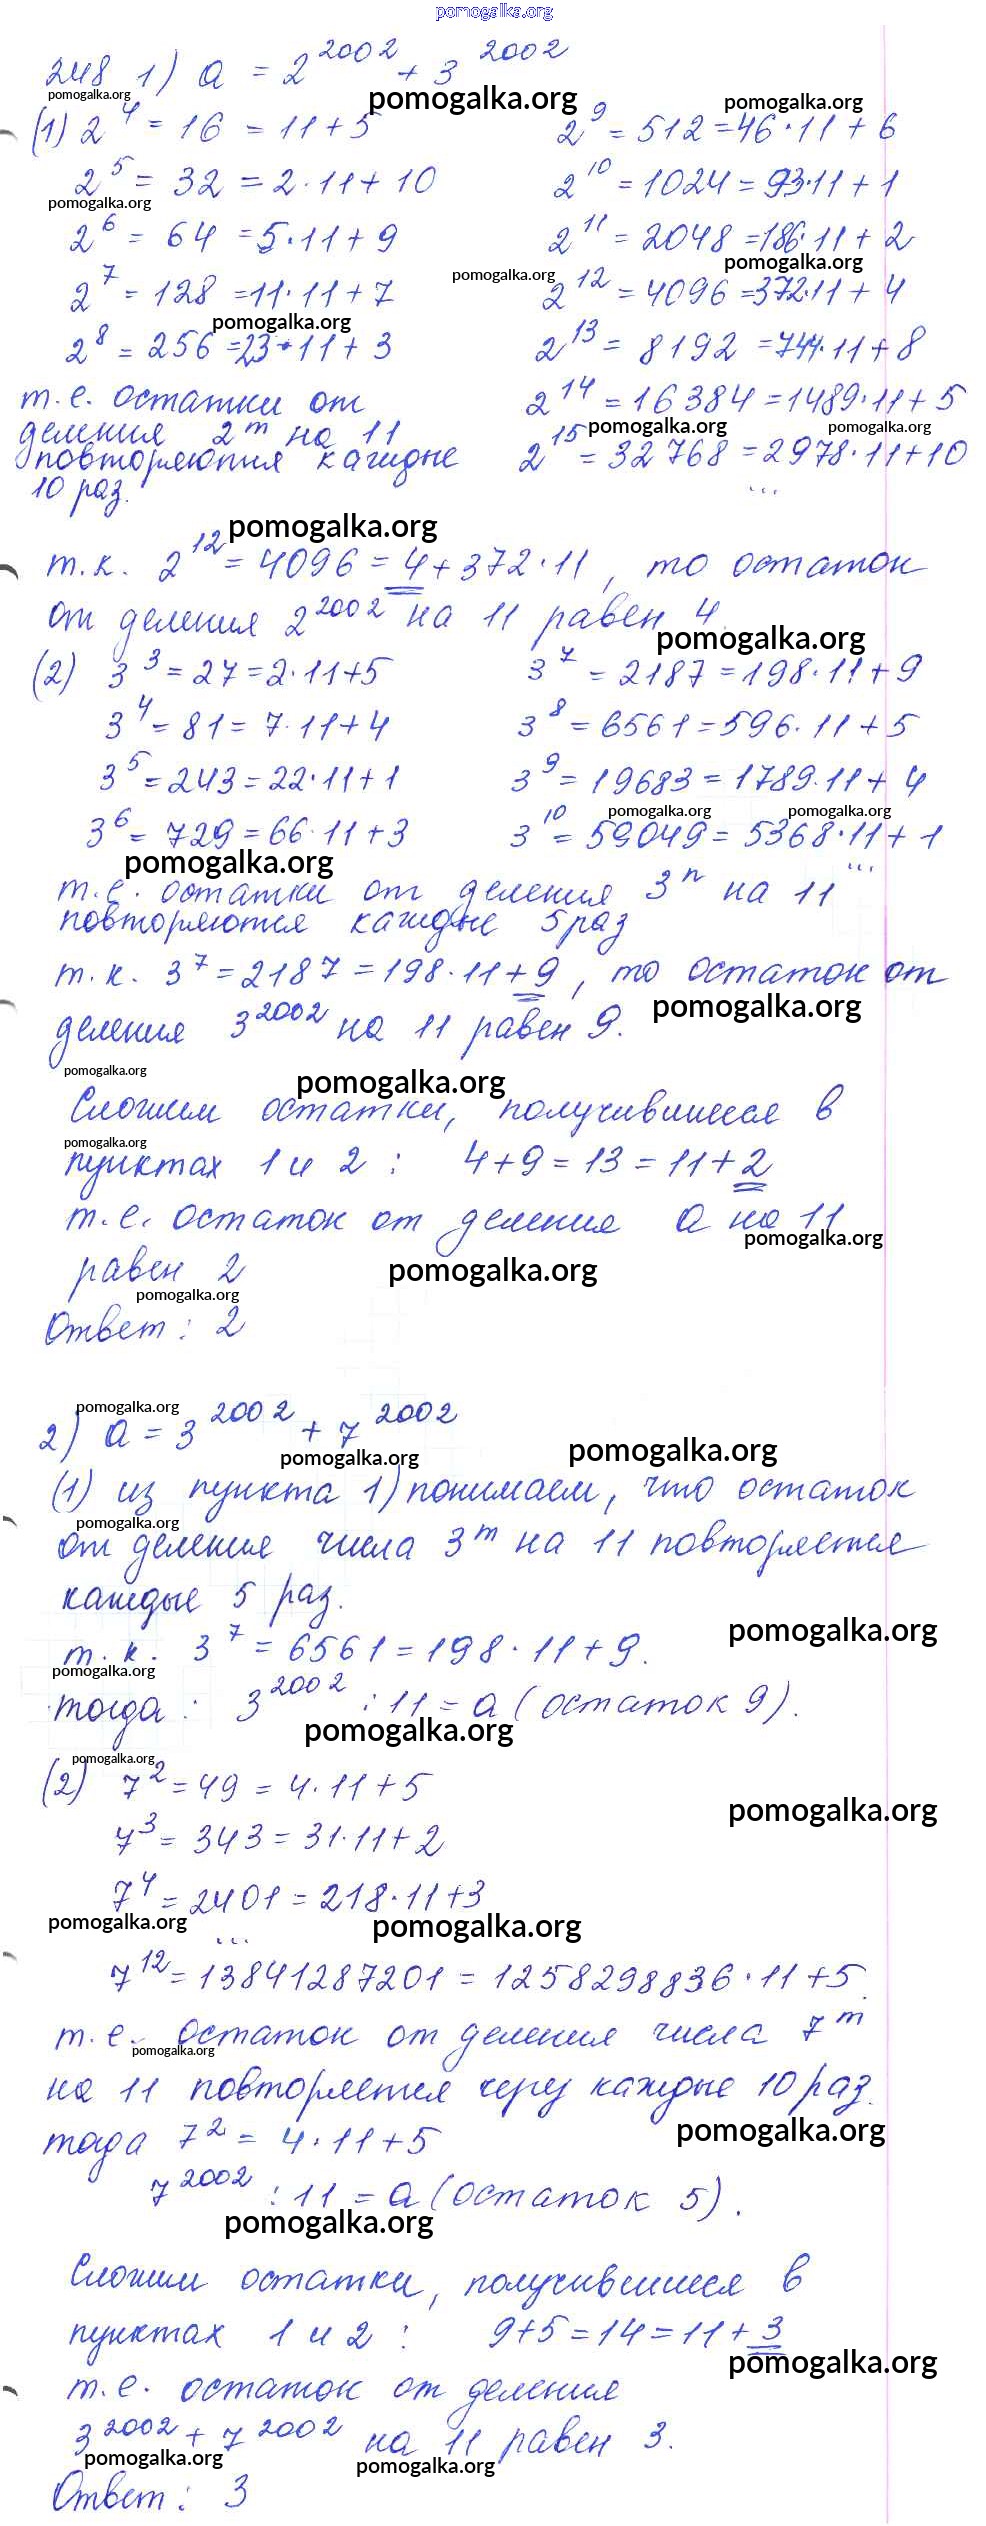 pomogalka.org
248 1) a = 2^2002 + 3^2002
pomogalka.org pomogalka.org pomogalka.org
(1) 2^4 = 16 = 11 + 5
2^5 = 32 = 2·11 + 10
pomogalka.org
2^6 = 64 = 5·11 + 9
2^7 = 128 = 11·11 + 7
pomogalka.org
2^8 = 256 = 23·11 + 3
т.е. остатки от
деления 2^m на 11
повторяются каждые
10 раз.
2^9 = 512 = 46·11 + 6
2^10 = 1024 = 93·11 + 1
2^11 = 2048 = 186·11 + 2
pomogalka.org pomogalka.org
2^12 = 4096 = 372·11 + 4
2^13 = 8192 = 744·11 + 8
2^14 = 16 384 = 1489·11 + 5
pomogalka.org pomogalka.org
2^15 = 32 768 = 2978·11 + 10
...
pomogalka.org
т.к. 2^12 = 4096 = 4 + 372·11, то остаток
от деления 2^2002 на 11 равен 4.
pomogalka.org
(2) 3^3 = 27 = 2·11+5
3^4 = 81 = 7·11+4
3^5 = 243 = 22·11+1
3^6 = 729 = 66·11+3
pomogalka.org
3^7 = 2187 = 198·11 + 9
3^8 = 6561 = 596·11 + 5
3^9 = 19683 = 1789·11 + 4
pomogalka.org pomogalka.org
3^10 = 59049 = 5368·11 + 1
...
т.е. остатки от деления 3^n на 11
повторяются каждые 5 раз
т.к. 3^7 = 2187 = 198·11 + 9, то остаток от
pomogalka.org
деления 3^2002 на 11 равен 9.
pomogalka.org pomogalka.org
Сложим остатки, получившиеся в
pomogalka.org
пунктах 1 и 2: 4+9 = 13 = 11+2
т.е. остаток от деления a на 11
pomogalka.org
равен 2
pomogalka.org
pomogalka.org
Ответ: 2
pomogalka.org
2) a = 3^2002 + 7^2002
pomogalka.org pomogalka.org
(1) из пункта 1) понимаем, что остаток
pomogalka.org
от деления числа 3^m на 11 повторяется
каждые 5 раз.
pomogalka.org
т.к. 3^7 = 6561 = 198·11 + 9.
pomogalka.org
тогда: 3^2002 : 11 = a (остаток 9).
pomogalka.org
pomogalka.org
(2) 7^2 = 49 = 4·11 + 5
pomogalka.org
7^3 = 343 = 31·11 + 2
7^4 = 2401 = 218·11+3
pomogalka.org pomogalka.org
...
7^12 = 13841287201 = 1258298836·11 + 5.
т.е. остаток от деления числа 7^m
pomogalka.org
на 11 повторяется через каждые 10 раз.
pomogalka.org
тогда 7^2 = 4·11 + 5
7^2002 : 11 = a (остаток 5).
pomogalka.org
Сложим остатки, получившиеся в
пунктах 1 и 2: 9+5 = 14 = 11 + 3
pomogalka.org
т.е. остаток от деления
3^2002 + 7^2002 на 11 равен 3.
pomogalka.org pomogalka.org
Ответ: 3